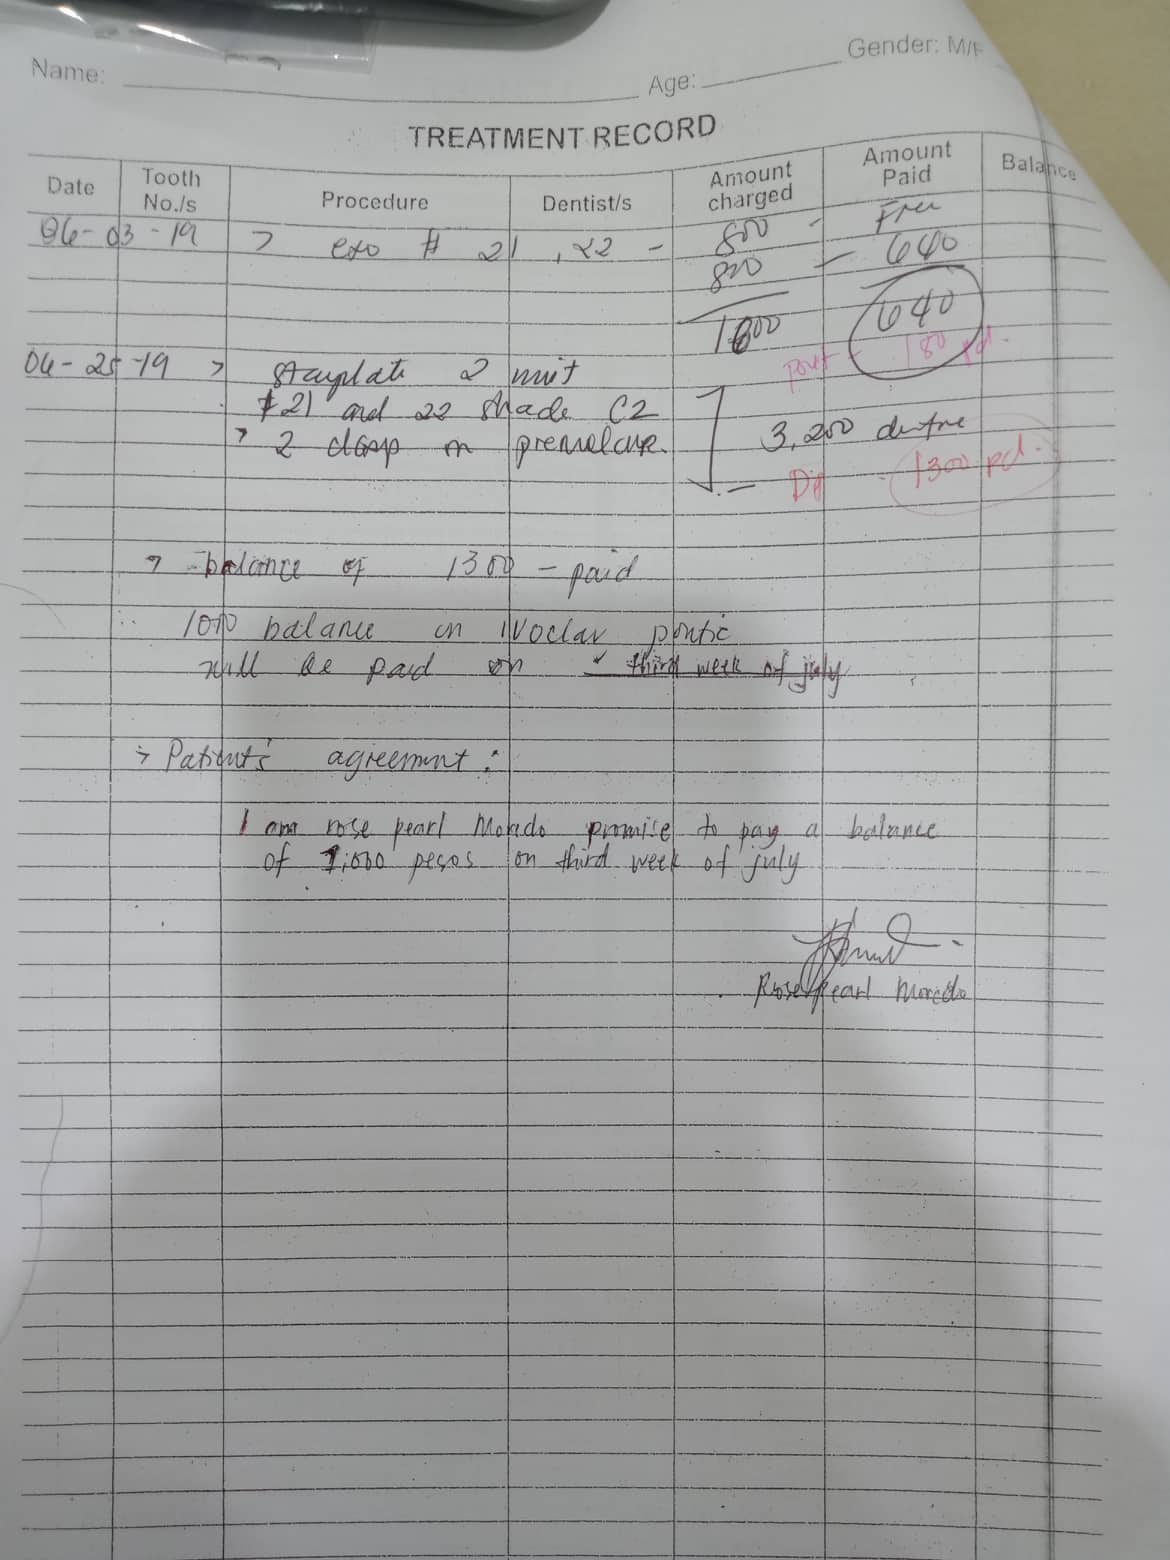 Name: Age: Gender: M/F
TREATMENT RECORD
Date Tooth No./s Procedure Dentist/s Amount charged Amount Paid Balance
06-03-19 > exo # 21, 22 - 800 - Free
800 - 640
1600 640
180 pd.
06-25-19 > stayplate 2 unit
#21 and 22 shade C2
> 2 clasp on 3,200
1300 pd.
> balance of 1300 - paid
1000 balance on ivoclar pontic
will be paid on third week of july
> Patient's agreement:
I am rose pearl promise to pay a balance
of 1,000 pesos on third week of july
Rose Pearl